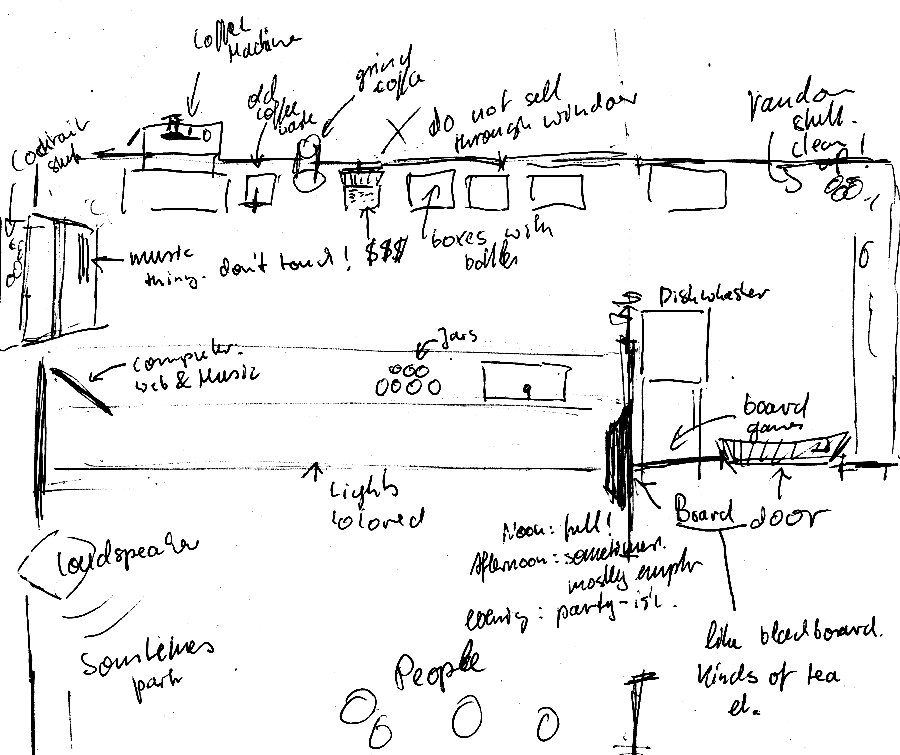 Coffee
Machine
old
coffee
grind
coffee
X do not sell
through window
random
stuff.
clean!
Cocktail
stuff
music
thing. don't touch! $$$
boxes with
bottles
Dishwasher
Jars
computer.
web & Music
board
games
Lights
colored
Board
door
Noon: full!
Afternoon: sometimes.
mostly empty
evening: party-ish.
Loudspeaker
Sometimes
party
People
like blackboard.
Kinds of tea